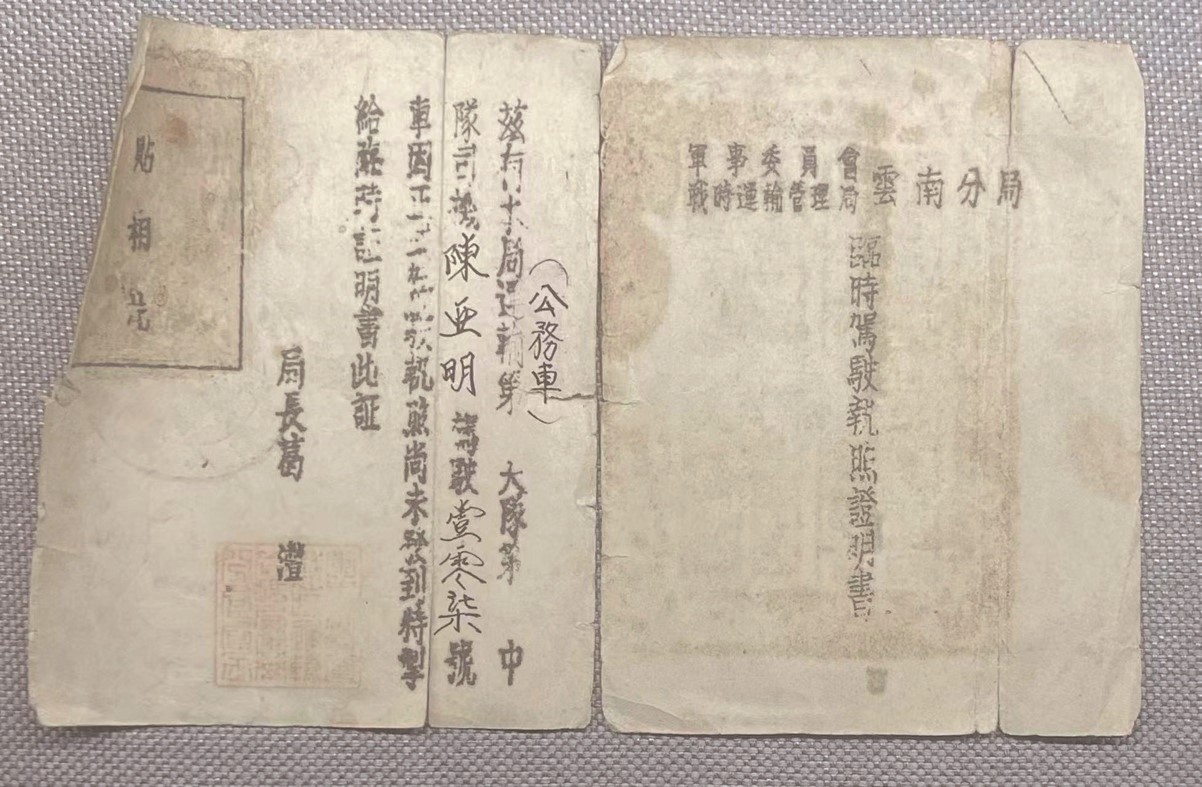 軍事委員會
戰時運輸管理局
雲南分局
臨時駕駛執照證明書
(公務車)
茲有本局運輸第 大隊第 中
隊司機陳亚明駕駛壹零柒號
車因正式執照尚未發到特製
給臨時証明書此証
局長葛 澄
貼相處